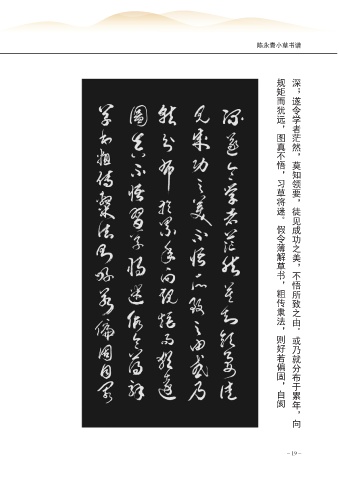 陈永贵小草书谱
深；遂令学者茫然，莫知领要，徒见成功之美，不悟所致之由。或乃就分布于累年，向
规矩而犹远，图真不悟，习草将迷。假令薄解草书，粗传隶法，则好若偏固，自阂
深遂令學者茫然莫知領要徒
見成功之美不悟所致之由或乃
就分布於累年向規矩而猶遠
圖真不悟習草將迷假令薄解
草書粗傳隸法則好若偏固自閡
- 19 -